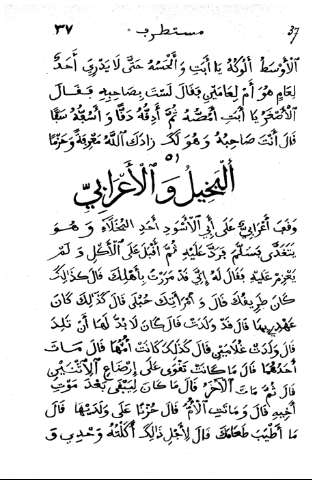 37 مستطرب ٣٧
الْأَوْسَطُ أَلُوكُهُ يَا أَبَتِ وَأَلْحَسُهُ حَتَّى لَا يَدْرِى أَحَدٌ
لِعَامٍ هُوَ أَمْ لِعَامَيْنِ فَقَالَ لَسْتَ بِصَاحِبِهِ فَقَالَ
الْأَصْغَرُ يَا أَبَتِ أَمُصُّهُ ثُمَّ أَدُقُّهُ دَقًّا وَأَسُفُّهُ سَفًّا
قَالَ أَنْتَ صَاحِبُهُ وَهُوَ لَكَ زَادَكَ اللَّهُ مَعْرِفَةً وَحَزْمًا
٥١
الْبَخِيلُ وَالْأَعْرَابِيُّ
وَقَفَ أَعْرَابِيٌّ عَلَى أَبِي الْأَسْوَدِ أَحَدِ الْبُخَلَاءِ وَهُوَ
يَتَغَدَّى فَسَلَّمَ فَرَدَّ عَلَيْهِ ثُمَّ أَقْبَلَ عَلَى الْأَكْلِ وَلَمْ
يَعْزِمْ عَلَيْهِ فَقَالَ لَهُ إِنِّي قَدْ مَرَرْتُ بِأَهْلِكَ قَالَ كَذَالِكَ
كَانَ طَرِيقُكَ قَالَ وَامْرَأَتُكَ حُبْلَى قَالَ كَذَالِكَ كَانَ
عَهْدِي بِهَا قَالَ قَدْ وَلَدَتْ قَالَ كَانَ لَا بُدَّ لَهَا أَنْ تَلِدَ
قَالَ وَلَدَتْ غُلَامَيْنِ قَالَ كَذَلِكَ كَانَتْ أُمُّهَا قَالَ مَاتَ
أَحَدُهُمَا قَالَ مَا كَانَتْ تَقْوَى عَلَى إِرْضَاعِ الْاِثْنَيْنِ
قَالَ ثُمَّ مَاتَ الْآخَرُ قَالَ مَا كَانَ لِيَبْقَى بَعْدَ مَوْتِ
أَخِيهِ قَالَ وَمَاتَتِ الْأُمُّ قَالَ حُزْنًا عَلَى وَلَدَيْهَا قَالَ
مَا أَطْيَبَ طَعَامَكَ قَالَ لِأَجْلِ ذَالِكَ أَكَلْتُهُ وَحْدِي وَ